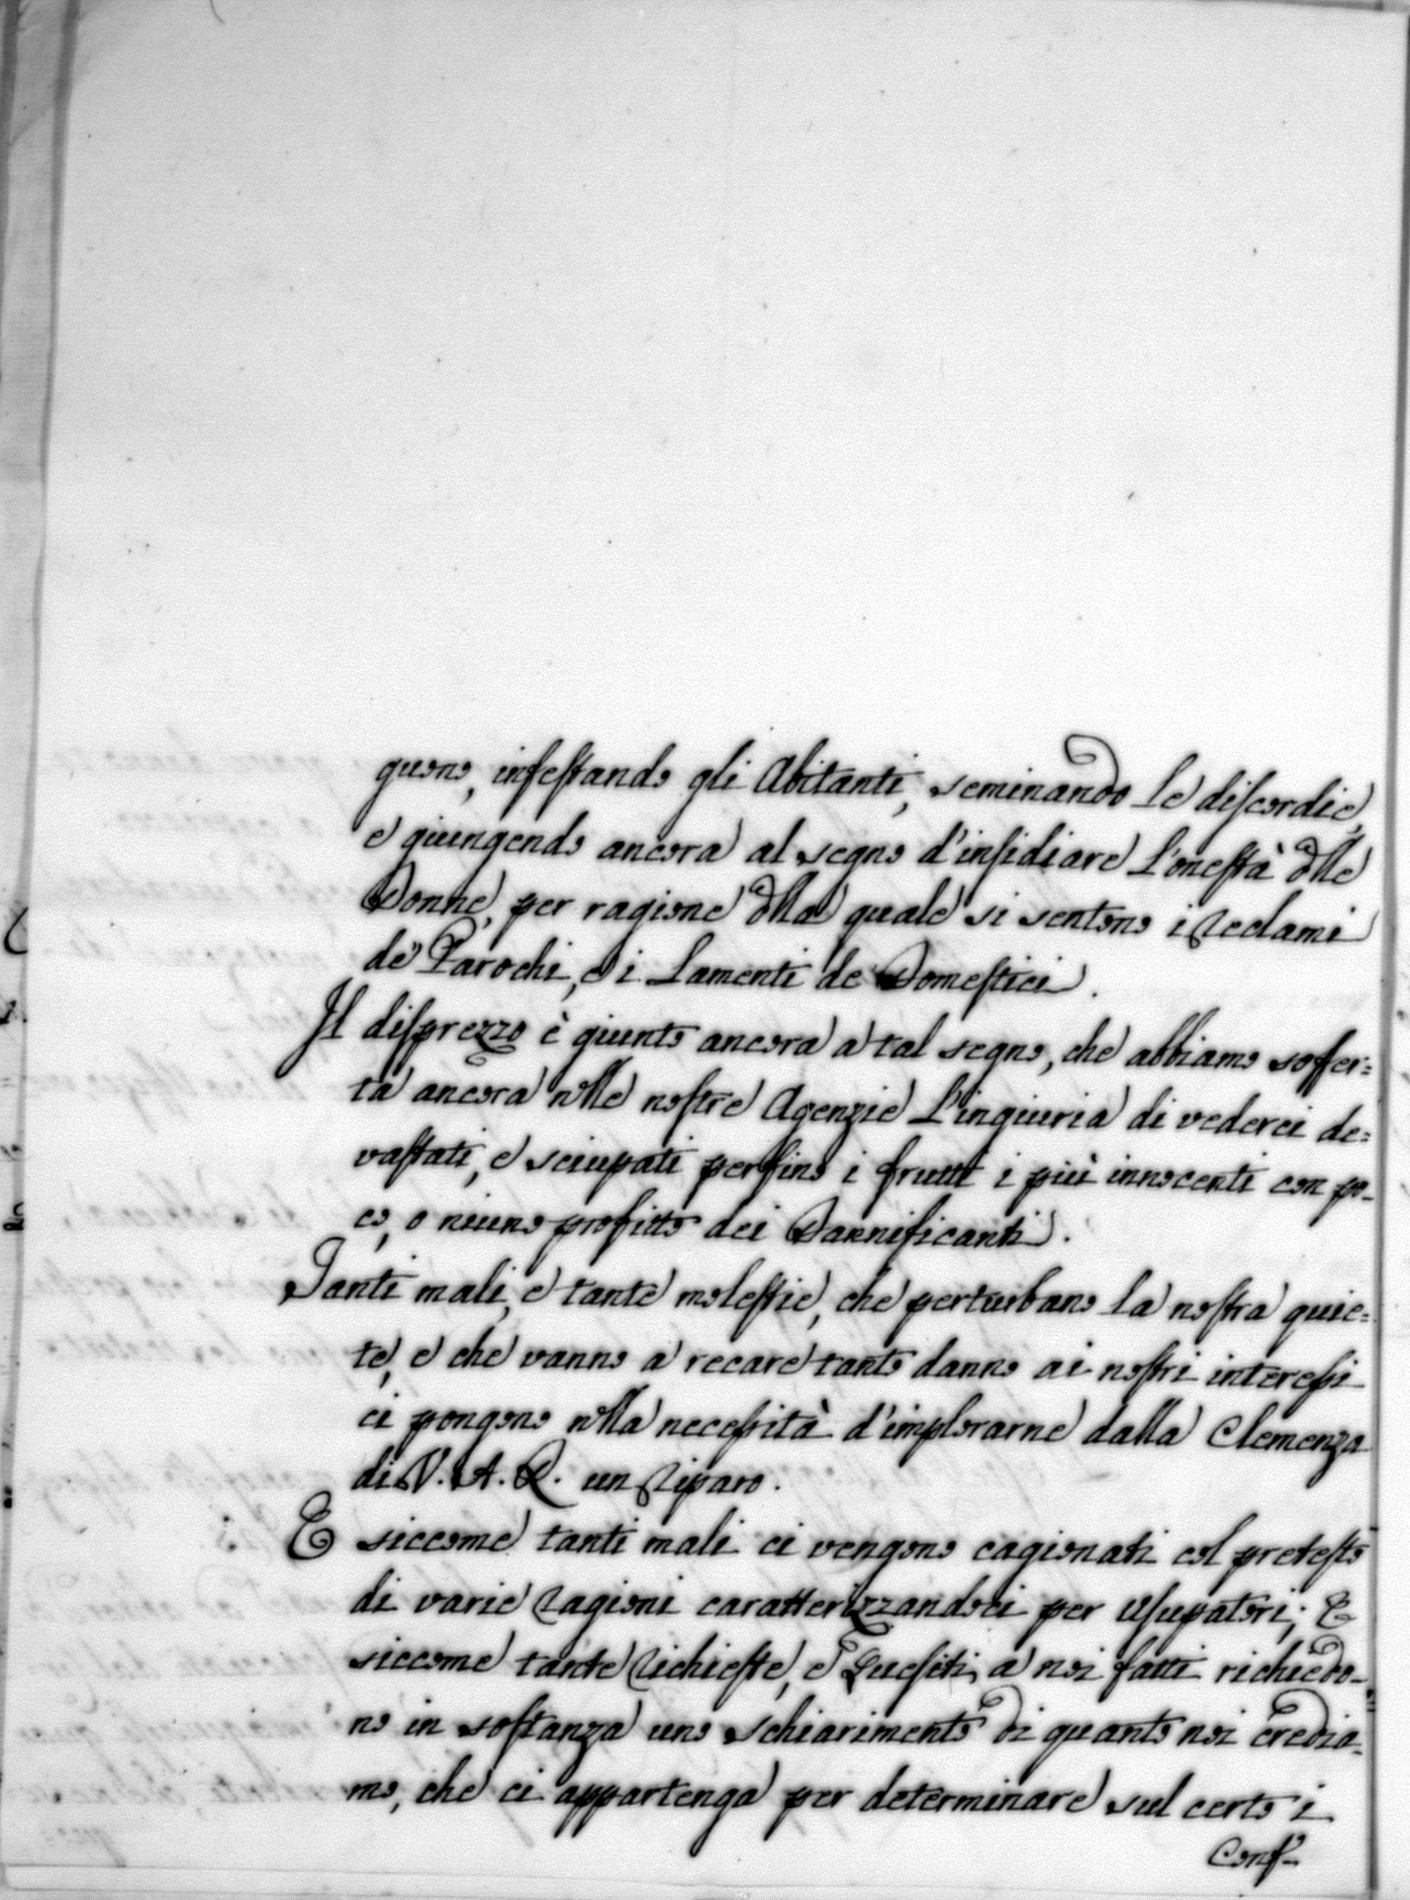 guono, infestando gli Abitanti, seminando le discordie,
e giungendo ancora al segno d'insidiare l'onestà dlle
Donne, per ragione dlla quale si sentono i Reclami
de' Parochi, e i Lamenti de' Domestici.
Il disprezzo è giunto ancora a tal segno, che abbiamo soffer=
ta ancora nlle nostre Agenzie l'ingiuria di vederci de=
vastati, e sciupati perfino i frutti i più innocenti con po-
co, o niuno profitto dei Dannificanti.
Tanti mali, e tante molestie, che perturbano la nostra quie=
te, e che vanno a recare tanto danno ai nostri interessi
ci pongono nlla necessità d'implorarne dalla Clemenza
di V. A. R. un Riparo.
E siccome tanti mali ci vengono cagionati col pretesto
di varie Ragioni caratterizzandoci per Usupatori; E
siccome tante Richieste, e Quesiti a noi fatti richiedo-
no in sostanza uno Schiarimento di quanto noi credia-
mo, che ci appartenga per determinare sul certo i
Conf-